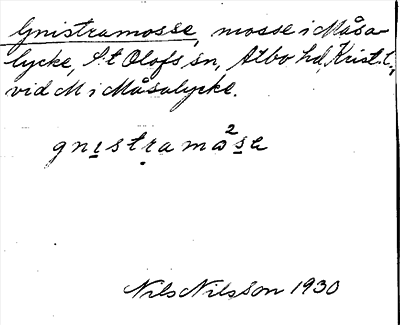 Gnistramosse, mosse i Måsa-
lycke, S:t Olofs sn, Albo hd, Krist. l.,
vid M i Måsalycke.
gnıstramω²se
Nils Nilsson 1930